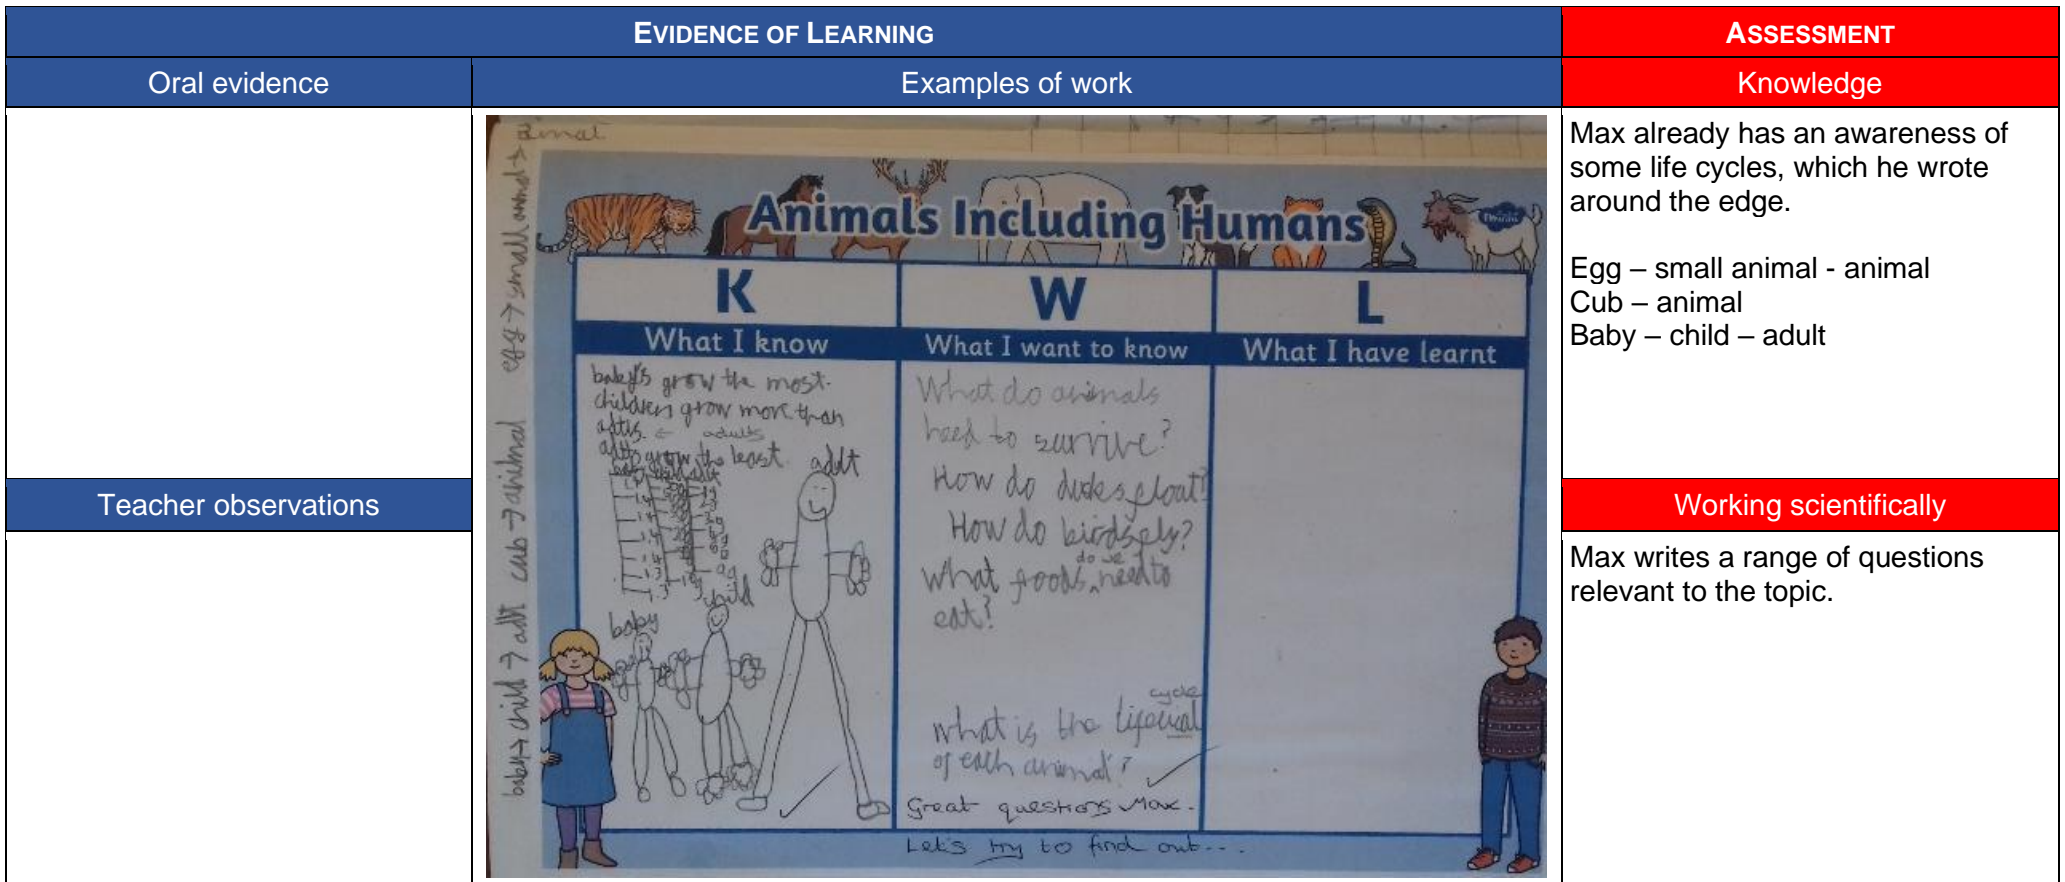 EVIDENCE OF LEARNING
ASSESSMENT
Oral evidence
Examples of work
Knowledge
Max already has an awareness of
some life cycles, which he wrote
around the edge.
Egg – small animal - animal
Cub – animal
Baby – child – adult
Teacher observations
Working scientifically
Max writes a range of questions
relevant to the topic.
baby → child → adlt cub → animal egg → small animal →
Animals Including Humans
twinkl
K
W
L
What I know
What I want to know
What I have learnt
grow the most.
children grow more than
← adults
grow the least.
adlt
child
baby
What do animals
need to survive?
How do ducks float?
How do birds fly?
do we
What foods need to
eat?
cycle
what is the
of each animal?
Great questions Max.
Let's try to find out...